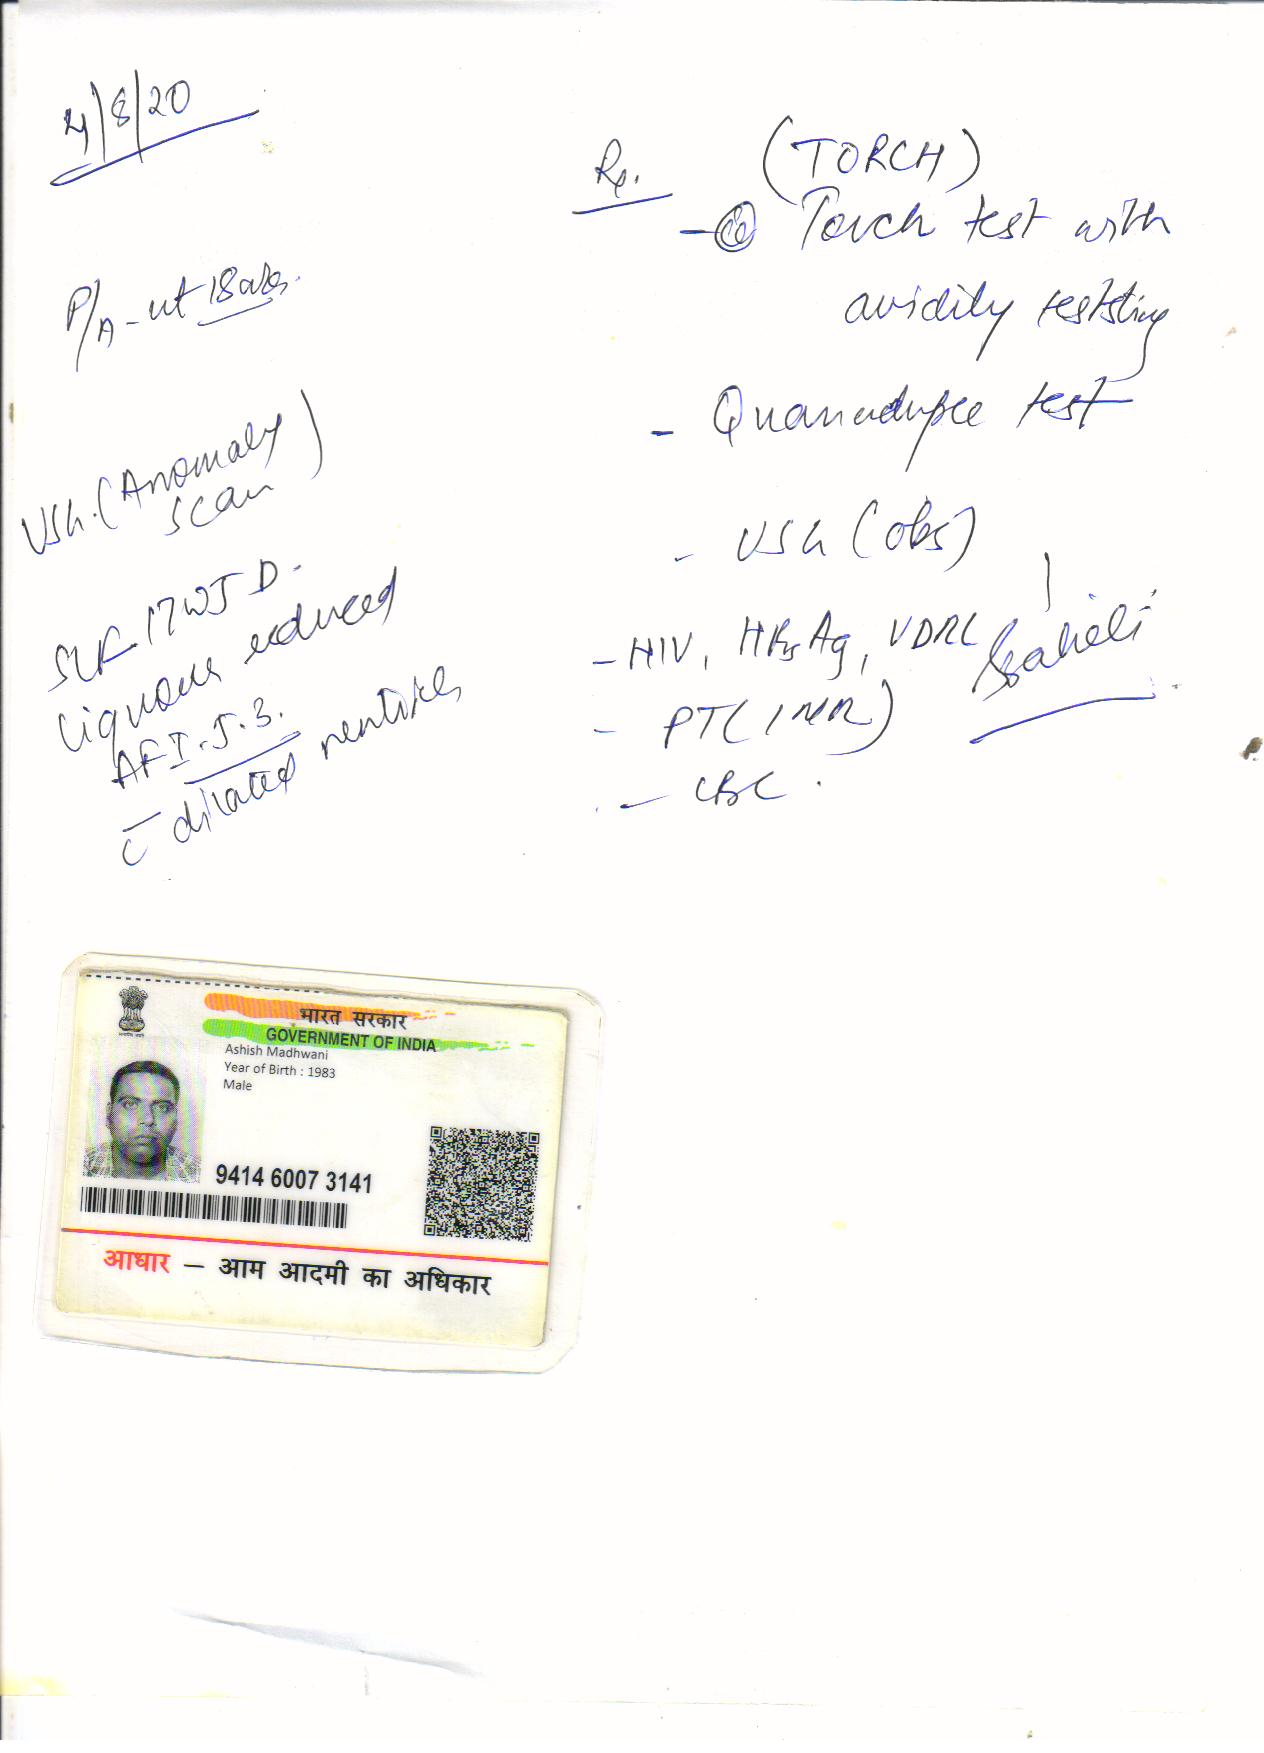 4/8/20
P/A - ut 18 wks.
USG. (Anomaly
scan)
SLF. 17W5D.
liquour reduced
AFI. 5.3.
c̄ dilated
Rx.
(TORCH)
- Torch test with
avidity teststing
- test
- USG (obs)
- HIV, HBsAg, VDRL
- PT (INR)
- CBC.
भारत सरकार
GOVERNMENT OF INDIA
Ashish Madhwani
Year of Birth : 1983
Male
9414 6007 3141
आधार – आम आदमी का अधिकार